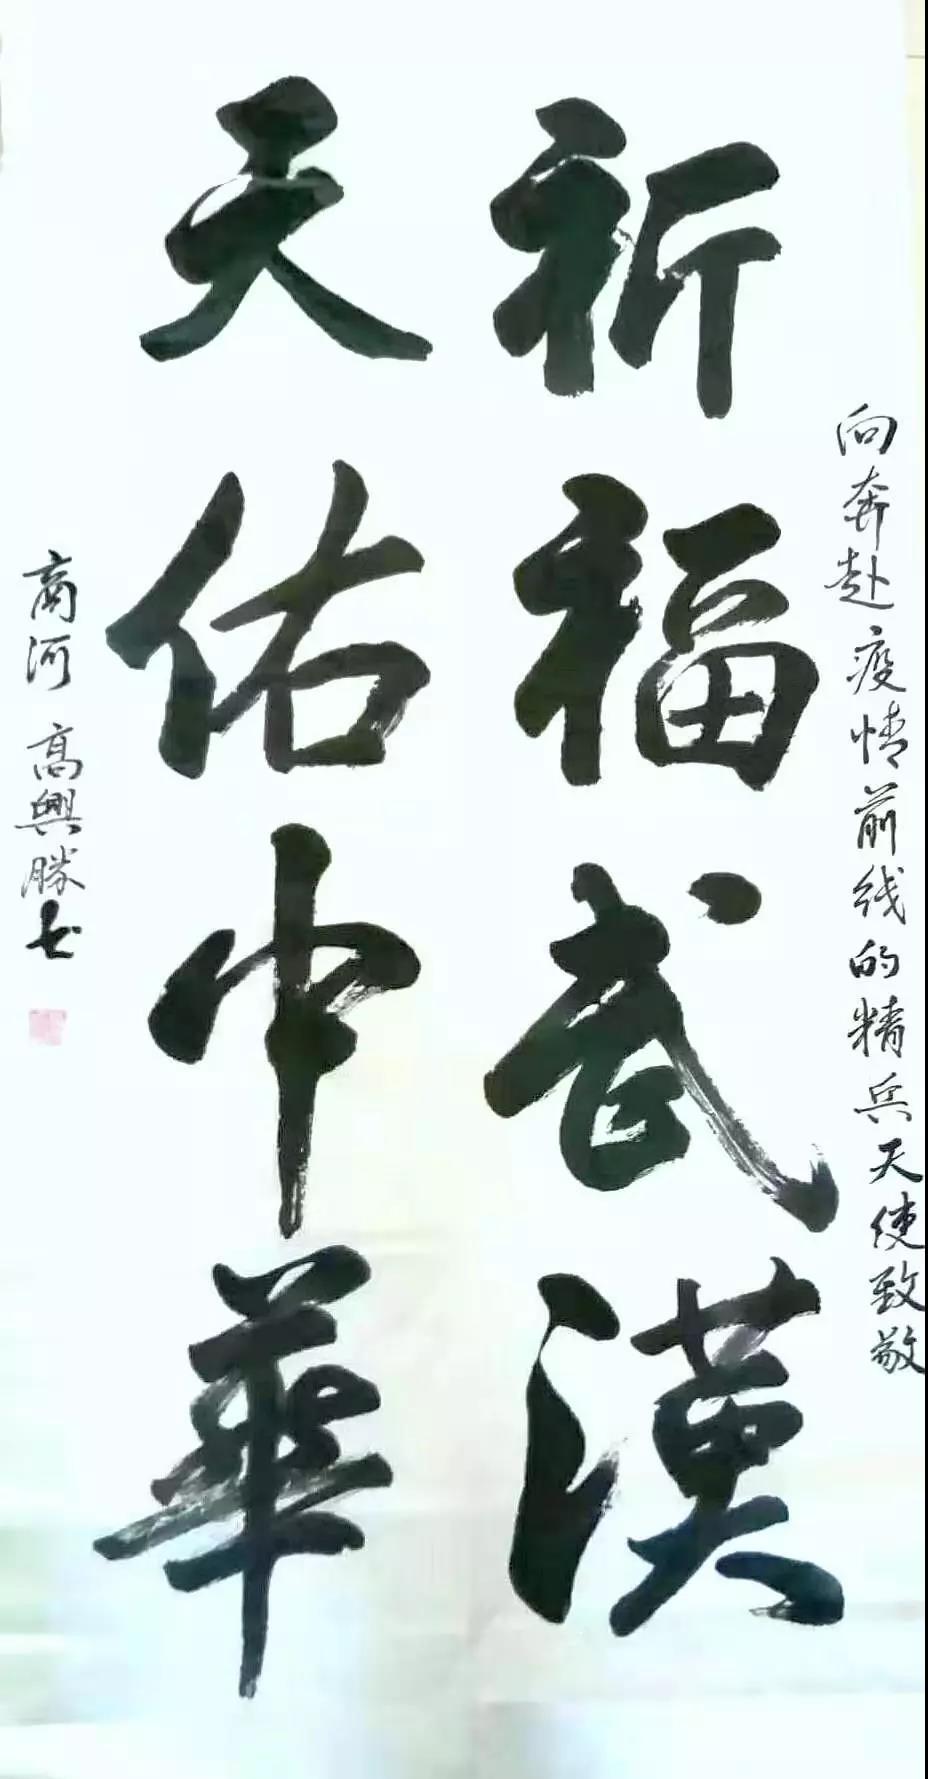 向奔赴疫情前线的精兵天使致敬
祈福武漢
天佑中華
商河 高興勝书